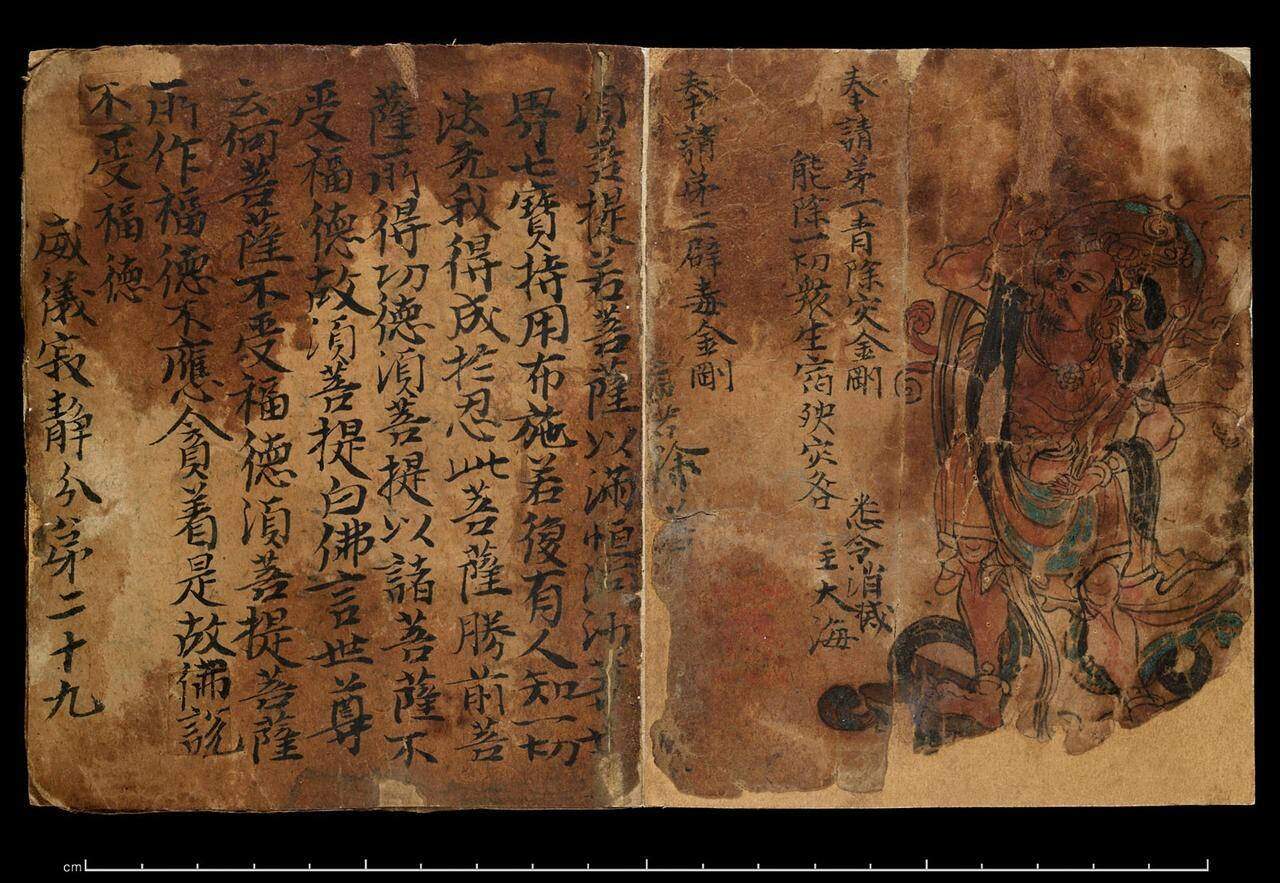 奉請苐一青除灾金剛
能除一切衆生宿殃灾咎 悉令消滅
主大海
奉請苐二辟毒金剛
除
須菩提若菩薩以滿恒河沙等世
界七寶持用布施若復有人知一切
法无我得成於忍此菩薩勝前菩
薩所得功德須菩提以諸菩薩不
受福德故須菩提白佛言世尊
云何菩薩不受福德須菩提菩薩
所作福德不應貪着是故佛說
不受福德
威儀寂静分苐二十九
cm